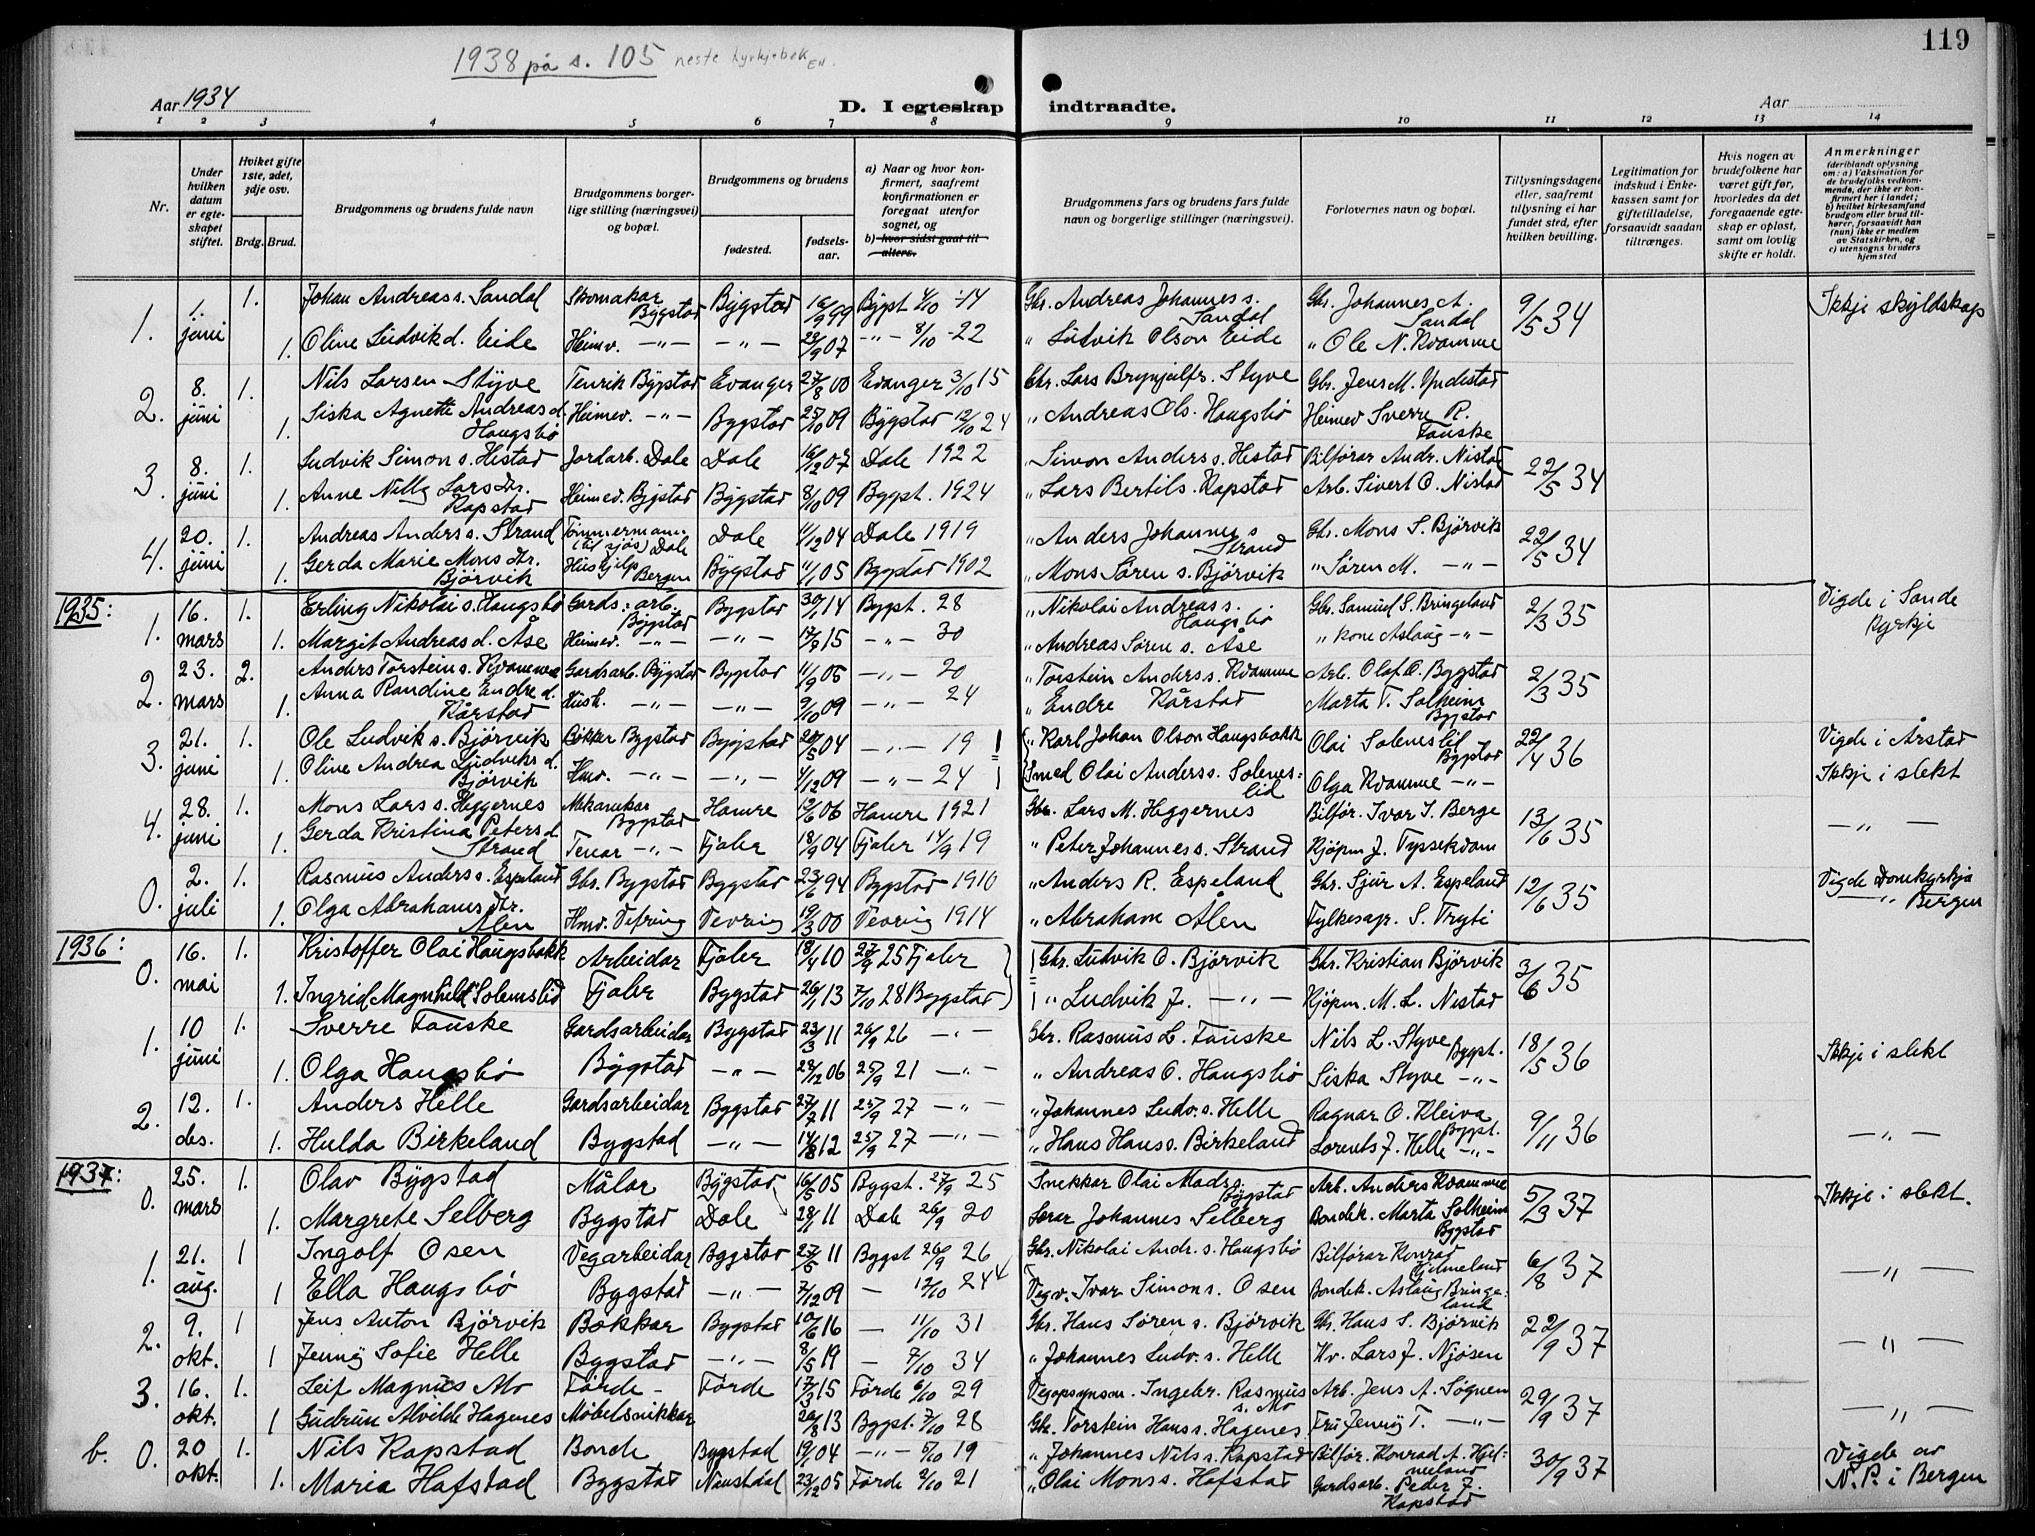 119
1938 på s. 105 neste kyrkjebok EN.
Aar 1934
D. I egteskap indtraadte.
Aar
1 2 3 4 5 6 7 8 9 10 11 12 13 14
Nr.
Under hvilken datum er egteskapet stiftet.
Hviket gifte 1ste, 2det, 3dje osv.
Brdg. Brud.
Brudgommens og brudens fulde navn
Brudgommens borgerlige stilling (næringsvei) og bopæl.
Brudgommens og brudens
fødested.
fødselsaar.
a) Naar og hvor konfirmert, saafremt konfirmationen er foregaat utenfor sognet, og
b) hvor sidst gaat til alters.
Brudgommens fars og brudens fars fulde navn og borgerlige stillinger (næringsvei).
Forlovernes navn og bopæl.
Tillysningsdagene eller, saafremt tillysning ei har fundet sted, efter hvilken bevilling.
Legitimation for indskud i Enkekassen samt for giftetilladelse, forsaavidt saadan tiltrænges.
Hvis nogen av brudefolkene har været gift før, hvorledes da det foregaaende egteskap er opløst, samt om lovlig skifte er holdt.
Anmerkninger (deriblandt oplysning om: a) Vaksination for de brudefolks vedkommende, der ikke er konfirmert her i landet; b) hvilket kirkesamfund brudgom eller brud tilhører, forsaavidt han (hun) ikke er medlem av Statskirken, og c) utensogns bruders hjemsted
1. 1. juni 1. Johan Andreas s. Sandal Skomakar Bygstad Bygstad 16/9 99 Bygst. 4/10 -14 Gbr. Andreas Johannes s. Sandal Gbr. Johannes A. Sandal 9/5 34 Ikkje skyldskap
1. Oline Ludvik d. Eide Heimv. -"- -"- 22/9 07 -"- 8/10 -22 " Ludvik Olson Eide " Ole N. Kvamme
2. 8. juni 1. Nils Larsen Styve Tenrik Bygstad Evanger 27/8 00 Evanger 3/10 15 Gbr. Lars Brynjulfs. Styve Gbr. Jens M. Yndestad
1. Siska Agnette Andreas d. Haugsbø Heimev. -"- Bygstad 25/10 09 Bygstad 12/10 24 " Andreas Ols. Haugsbø Heimev Sverre R. Fauske
3. 8. juni 1. Ludvik Simon s. Hestad Jordarb. Dale Dale 16/12 07 Dale 1922 " Simon Anders s. Hestad Bilførar Andr. Nistad 22/5 34
1. Anne Nilla Lars dr. Rapstad Heimev. Bygstad Bygstad 8/10 09 Bygst. 1924 " Lars Bertil s. Rapstad Arb. Sivert O. Nistad
4. 20. juni 1. Andreas Anders s. Strand Tømmermann (til sjøs) Dale Dale 11/12 04 Dale 1919 " Anders Johannes s Strand Gbr. Mons S. Bjørvik 22/5 34
1. Gerda Marie Mons dr. Bjørvik Hushjelp Bergen Bygstad 11/1 05 Bygstad 1902 " Mons Søren s. Bjørvik " Søren M. -"-
1935:
1. 16. mars 1. Erling Nikolai s. Haugsbø Gards: arb. Bygstad Bygstad 30/1 14 Bygst. 28 " Nikolai Andreas s. Haugsbø Gbr. Samuel S. Bringeland 2/3 35 Vigde i Sande Kyrkje
1. Margit Andreas d. Åse Heimev. -"- -"- 17/7 15 -"- 30 " Andreas Søren s. Åse " kone Aslaug -"-
2. 23. mars 2. Anders Torstein s. Kvamme Gardsarb. Bygstad Bygstad 11/9 05 -"- 20 " Torstein Anders s. Kvamme Arb. Olaf O. Bygstad 2/3 35
1. Anna Randine Endre d. Kårstad Hush. -"- -"- 9/10 09 -"- 24 " Endre Kårstad Marta T. Solheim Bygstad
3. 21. juni 1. Ole Ludvik s. Bjørvik Bøkker Bygstad Bygstad 20/5 04 -"- 19 " Karl Johan Olson Haugsbakk Olai Solneslid Bygstad 22/4 36 Vigde i Årstad
1. Oline Andrea Ludviks d. Bjørvik Hmv. -"- -"- 4/12 09 -"- 24 Smed Olai Anders s. Solneslid Olga Kvamme -"- Ikkje i slekt
4. 28. juni 1. Mons Lars s. Heggernes Mekanikar Bygstad Hamre 12/6 06 Hamre 1921 Gbr. Lars M. Heggernes Bilfør. Ivar I. Berge 13/6 35 -"-
1. Gerda Kristina Peters d. Strand Tenar -"- Fjaler 18/9 04 Fjaler 14/9 19 " Peter Johannes s. Strand Kjøpm J. Tyssekvam
0. 2. juli 1. Rasmus Anders s. Espeland Gbr. Bygstad Bygstad 23/6 94 Bygstad 1910 " Anders R. Espeland Gbr. Sjur A. Espeland 12/6 35 Vigde Domkyrkja
1. Olga Abrahams dr. Ålen Hmv. Vefring Vevring 19/3 00 Vevring 1914 " Abraham Ålen Fylkesagr. S. Tryti " Bergen
1936:
0. 16. mai 1. Kristoffer Olai Haugsbakk Arbeidar Fjaler 18/4 10 27/9 25 Fjaler Gbr. Ludvik O. Bjørvik Gbr. Kristian Bjørvik 3/6 35
1. Ingrid Magnhild Solemslid Fjaler Bygstad 26/1 13 7/10 28 Bygstad " Ludvik J. -"- Kjøpm. M. L. Nistad
1. 10 juni 1. Sverre Fauske Gardsarbeidar Bygstad 23/3 11 26/9 26 -"- Gbr. Rasmus L. Fauske Nils L. Styve Bygst. 18/5 36 Ikkje i slekt
1. Olga Haugsbø Bygstad -"- 28/12 06 25/9 21 -"- " Andreas O. Haugsbø Siska Styve -"-
2. 12. des. 1. Anders Helle Gardsarbeidar Bygstad 27/7 11 25/9 27 -"- " Johannes Ludv. s. Helle Ragnar O. Kleiva Bygst. 9/11 36 -"-
1. Hulda Birkeland Bygstad -"- 14/8 12 25/9 27 -"- " Hans Hans s. Birkeland Lorents J. Helle -"-
1937:
0. 25. mars 1. Olav Bygstad Målar Bygstad 16/5 05 Bygst. 27/9 25 Snekkar Olai Mads s. Bygstad Arb. Anders Kvamme 5/3 37 Ikkje i slekt.
1. Margrete Selberg Bygstad Dale 28/1 11 Dale 26/9 20 Lærar Johannes Selberg Bondek. Marta Solheim Bygstad
1. 21. aug. 1 Ingolf Osen Vegarbeidar Bygstad 27/5 11 Bygst 26/9 26 Gbr. Nikolai Andr. s. Haugsbø Bilførar Konrad Hjelmeland 6/8 37 -"-
1 Ella Haugsbø Bygstad -"- 7/12 09 - 12/10 24 Vegv. Ivar Simon s. Osen Bondek. Aslaug Bringeland
2. 9. okt. 1 Jens Anton Bjørvik Bøkkar Bygstad 10/6 16 - 11/10 31 Gbr. Hans Søren s. Bjørvik Gbr. Hans S. Bjørvik 22/9 37 -"-
1 Jenny Sofie Helle Bygstad -"- 8/5 19 - 7/10 34 " Johannes Ludv. s. Helle Kv. Lars J. Njøsen
3. 16. okt. 1. Leif Magnus Mo Førde - Førde 17/3 15 Førde 6/10 29 Vegopsynsm. Ingebr. Rasmus s. Mo Arb. Jens A. Sognen 29/9 37 -"-
1 Gudrun Alvilde Hagenes Møbelsnikkar 20/8 13 Bygst. 7/10 28 Gbr. Torstein Hans s. Hagenes Fru Jenny T. -"-
b. 0. 20 okt. 1. Nils Rapstad Bonde Bygstad 19/1 04 -"- 5/10 19 " Johannes Nils s. Rapstad Bilfør. Konrad A. Hjelmeland 30/9 37 Vigde av
1. Maria Hafstad Bygstad Naustdal 23/12 05 Førde 2/10 21 " Olai Mons s. Hafstad Gardsarb. Peder J. Rapstad N. P. i Bergen